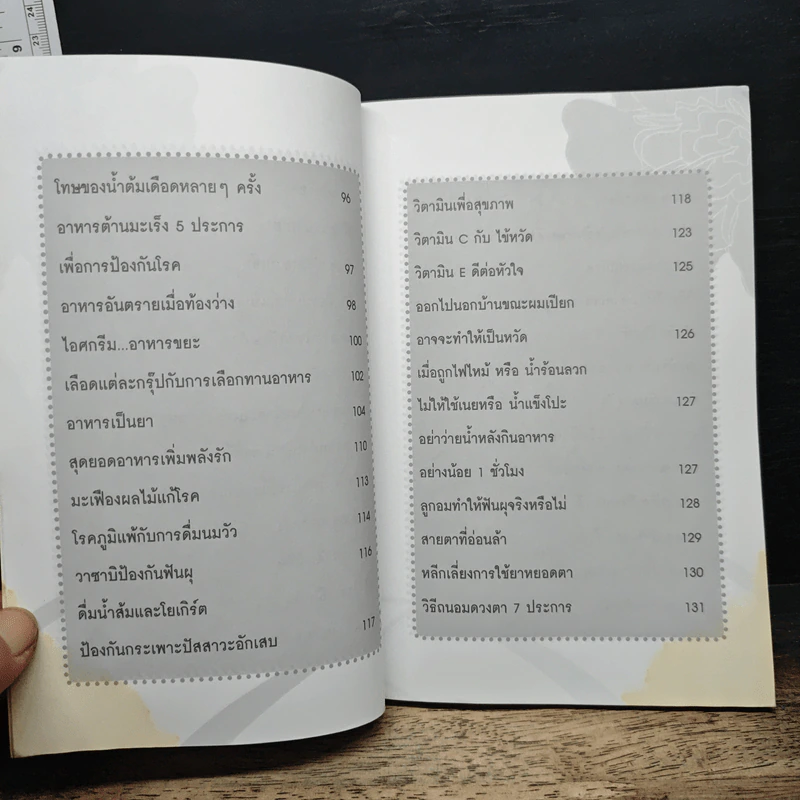 โทษของน้ำต้มเดือดหลายๆ ครั้ง 96
อาหารต้านมะเร็ง 5 ประการ
เพื่อการป้องกันโรค 97
อาหารอันตรายเมื่อท้องว่าง 98
ไอศกรีม...อาหารขยะ 100
เลือดแต่ละกรุ๊ปกับการเลือกทานอาหาร 102
อาหารเป็นยา 104
สุดยอดอาหารเพิ่มพลังรัก 110
มะเฟืองผลไม้แก้โรค 113
โรคภูมิแพ้กับการดื่มนมวัว 114
วาซาบิป้องกันฟันผุ 116
ดื่มน้ำส้มและโยเกิร์ต
ป้องกันกระเพาะปัสสาวะอักเสบ 117
วิตามินเพื่อสุขภาพ 118
วิตามิน C กับ ไข้หวัด 123
วิตามิน E ดีต่อหัวใจ 125
ออกไปนอกบ้านขณะผมเปียก
อาจจะทำให้เป็นหวัด 126
เมื่อถูกไฟไหม้ หรือ น้ำร้อนลวก
ไม่ให้ใช้เนยหรือ น้ำแข็งโปะ 127
อย่าว่ายน้ำหลังกินอาหาร
อย่างน้อย 1 ชั่วโมง 127
ลูกอมทำให้ฟันผุจริงหรือไม่ 128
สายตาที่อ่อนล้า 129
หลีกเลี่ยงการใช้ยาหยอดตา 130
วิธีถนอมดวงตา 7 ประการ 131
24
23
9